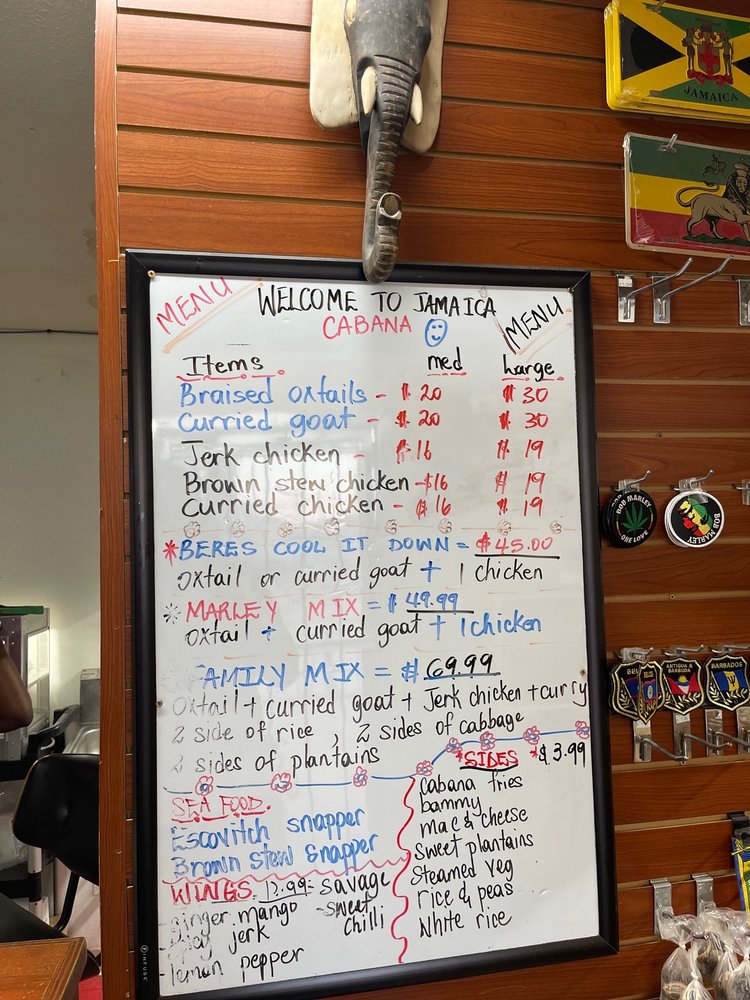 JAMAICA
MENU
WELCOME TO JAMAICA
CABANA
MENU
Items med Large
Braised oxtails - $20 $30
Curried goat - $20 $30
Jerk chicken - $16 $19
Brown stew chicken - $16 $19
Curried chicken - $16 $19
*BERES COOL IT DOWN = $45.00
oxtail or curried goat + 1 chicken
*MARLEY MIX = $49.99
oxtail + curried goat + 1 chicken
FAMILY MIX = $69.99
oxtail + curried goat + Jerk chicken + curry
2 side of rice, 2 sides of cabbage
2 sides of plantains
*SIDES *$3.99
cabana fries
bammy
mac & cheese
sweet plantains
Steamed veg
rice & peas
White rice
SEA FOOD.
Escovitch snapper
Brown stew Snapper
WINGS. 12.99- savage
ginger mango - sweet chilli
jerk
lemon pepper
INFUSE
BOB MARLEY
ONE LOVE
BOB MARLEY
ANTIGUA & BARBUDA
BARBADOS